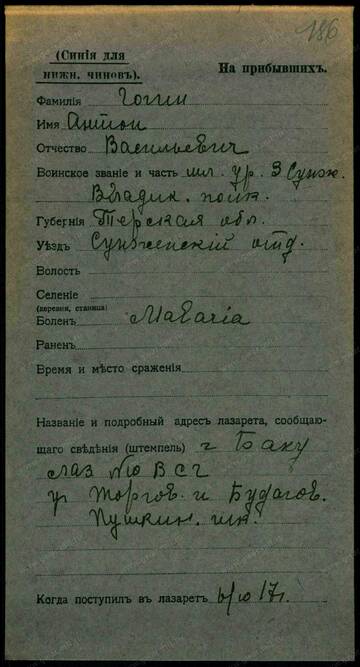 186
(Синія для
нижн. чиновъ).
На прибывшихъ.
Фамилія Гоггин
Имя Антон
Отчество Васильевич
Воинское званіе и часть мл. ур. 3 Сунж.
Владик. полк.
Губернія Терская обл.
Уѣздъ Сунженскій отд.
Волость
Селеніе
(деревня, станица)
Боленъ Малагіа
Раненъ
Время и мѣсто сраженія
Названіе и подробный адресъ лазарета, сообщаю-
щаго свѣдѣнія (штемпель) г Баку
лаз №10 ВСГ
уг Торгов. и Будагов.
Пушкин.
Когда поступилъ въ лазаретъ 6/10 17г.